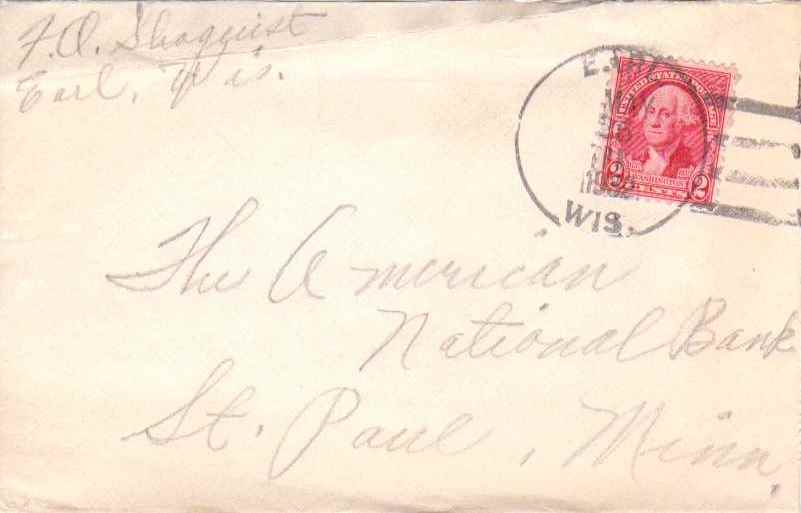 F. O. Skogquist
Earl, Wis.
UNITED STATES POSTAGE
2 WASHINGTON 2
WIS.
The American
National Bank
St. Paul, Minn.